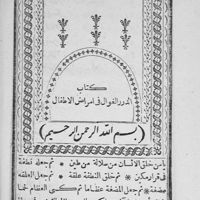 كتاب
الدرر الغوال فى امراض الاطفال
(بسم الله الرحمن الرحيم)
يامن خلق الانسان من سلالة من طين * ثم جعله نطفة
فى قرار مكين * ثم خلق النطفة علقة * ثم جعل العلقة
مضغة * ثم جعل المضغة عظاما ثم كسى العظام لحما